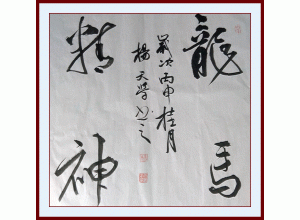 龍馬
精神
歲次丙申桂月
楊天學書